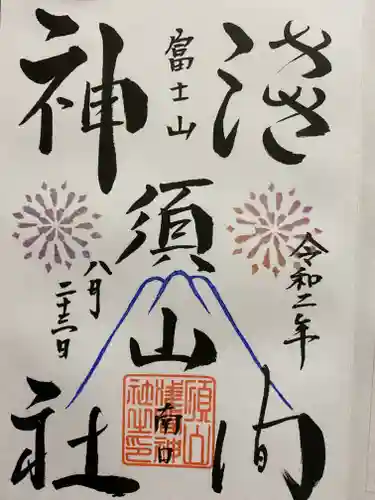 淺間
令和二年
富士山
須山
南口
神社
八月
二十三日
須山
淺間神
社之印